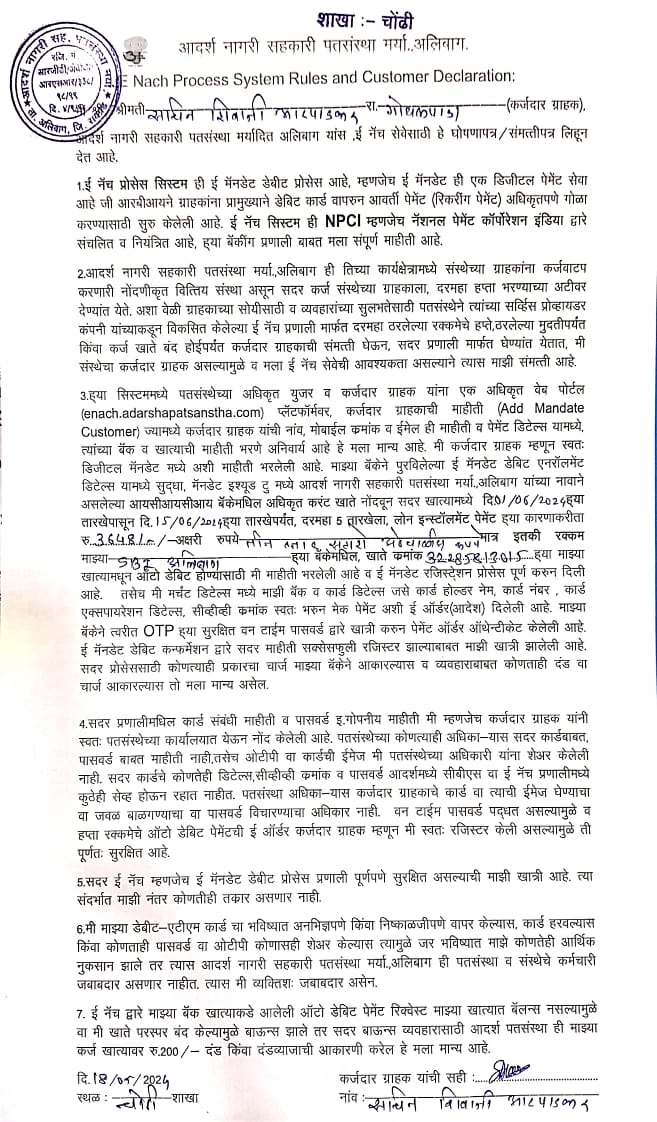 शाखा :- चोंढी
आदर्श नागरी सहकारी पतसंस्था मर्या.,अलिबाग.
E Nach Process System Rules and Customer Declaration:
श्रीमती सचिन शिवाजी भाटपाडकर रा. गोंधळपाडा (कर्जदार ग्राहक).
आदर्श नागरी सहकारी पतसंस्था मर्यादित अलिबाग यांस ,ई नॅच सेवेसाठी हे घोषणापत्र/संमत्तीपत्र लिहून
देत आहे.
1.ई नॅच प्रोसेस सिस्टिम ही ई मॅनडेट डेबीट प्रोसेस आहे, म्हणजेच ई मॅनडेट ही एक डिजीटल पेमेंट सेवा
आहे जी आरबीआयने ग्राहकांना प्रामुख्याने डेबिट कार्ड वापरुन आवर्ती पेमेंट (रिकरींग पेमेंट) अधिकृतपणे गोळा
करण्यासाठी सुरु केलेली आहे. ई नॅच सिस्टिम ही NPCI म्हणजेच नॅशनल पेमेंट कॉर्पोरेशन इंडिया द्वारे
संचलित व नियंत्रित आहे, ह्या बॅकींग प्रणाली बाबत मला संपूर्ण माहीती आहे.
2.आदर्श नागरी सहकारी पतसंस्था मर्या.,अलिबाग ही तिच्या कार्यक्षेत्रामध्ये संस्थेच्या ग्राहकांना कर्जवाटप
करणारी नोंदणीकृत वित्तिय संस्था असून सदर कर्ज संस्थेच्या ग्राहकाला, दरमहा हप्ता भरण्याच्या अटीवर
देण्यांत येते. अशा वेळी ग्राहकाच्या सोयीसाठी व व्यवहारांच्या सुलभतेसाठी पतसंस्थेने त्यांच्या सर्व्हिस प्रोव्हायडर
कंपनी यांच्याकडून विकसित केलेल्या ई नॅच प्रणाली मार्फत दरमहा ठरलेल्या रक्कमेचे हप्ते,ठरलेल्या मुदतीपर्यंत
किंवा कर्ज खाते बंद होईपर्यंत कर्जदार ग्राहकाची संमत्ती घेऊन, सदर प्रणाली मार्फत घेण्यांत येतात, मी
संस्थेचा कर्जदार ग्राहक असल्यामुळे व मला ई नॅच सेवेची आवश्यकता असल्याने त्यास माझी संमत्ती आहे.
3.ह्या सिस्टममध्ये पतसंस्थेच्या अधिकृत युजर व कर्जदार ग्राहक यांना एक अधिकृत वेब पोर्टल
(enach.adarshapatsanstha.com) प्लॅटफॉर्मवर, कर्जदार ग्राहकाची माहीती (Add Mandate
Customer) ज्यामध्ये कर्जदार ग्राहक यांची नांव, मोबाईल क्रमांक व ईमेल ही माहीती व पेमेंट डिटेल्स यामध्ये,
त्यांच्या बँक व खात्याची माहीती भरणे अनिवार्य आहे हे मला मान्य आहे. मी कर्जदार ग्राहक म्हणून स्वतः
डिजीटल मॅनडेट मध्ये अशी माहीती भरलेली आहे. माझ्या बॅकेने पुरविलेल्या ई मॅनडेट डेबिट एनरॉलमेंट
डिटेल्स यामध्ये सुद्धा, मॅनडेट इश्यूड टु मध्ये आदर्श नागरी सहकारी पतसंस्था मर्या.,अलिबाग यांच्या नावाने
असलेल्या आयसीआयसीआय बॅकेमधिल अधिकृत करंट खाते नोंदवून सदर खात्यामध्ये दि.01/06/2024ह्या
तारखेपासून दि.15/06/2024ह्या तारखेपर्यंत, दरमहा 5 तारखेला, लोन इन्स्टॉलमेंट पेमेंट ह्या कारणाकरीता
रु.36481/-अक्षरी रुपये मात्र इतकी रक्कम
माझ्या SBI अलिबाग ह्या बॅकेमधिल, खाते क्रमांक 32285813015 ह्या माझ्या
खात्यामधून ऑटो डेबिट होण्यासाठी मी माहीती भरलेली आहे व ई मॅनडेट रजिस्ट्रेशन प्रोसेस पूर्ण करुन दिली
आहे. तसेच मी मर्चंट डिटेल्स मध्ये माझी बॅक व कार्ड डिटेल्स जसे कार्ड होल्डर नेम, कार्ड नंबर , कार्ड
एक्सपायरेशन डिटेल्स, सीव्हीव्ही क्रमांक स्वतः भरुन मेक पेमेंट अशी ई ऑर्डर(आदेश) दिलेली आहे. माझ्या
बॅकेने त्वरीत OTP ह्या सुरक्षित वन टाईम पासवर्ड द्वारे खात्री करुन पेमेंट ऑर्डर ऑथेन्टीकेट केलेली आहे.
ई मॅनडेट डेबिट कन्फर्मेशन द्वारे सदर माहीती सक्सेसफुली रजिस्टर झाल्याबाबत माझी खात्री झालेली आहे.
सदर प्रोसेससाठी कोणत्याही प्रकारचा चार्ज माझ्या बॅकेने आकारल्यास व व्यवहाराबाबत कोणताही दंड वा
चार्ज आकारल्यास तो मला मान्य असेल.
4.सदर प्रणालीमधिल कार्ड संबंधी माहीती व पासवर्ड इ.गोपनीय माहीती मी म्हणजेच कर्जदार ग्राहक यांनी
स्वतः पतसंस्थेच्या कार्यालयात येऊन नोंद केलेली आहे. पतसंस्थेच्या कोणत्याही अधिका–यास सदर कार्डबाबत,
पासवर्ड बाबत माहीती नाही,तसेच ओटीपी वा कार्डची ईमेज मी पतसंस्थेच्या अधिकारी यांना शेअर केलेली
नाही. सदर कार्डचे कोणतेही डिटेल्स,सीव्हीव्ही क्रमांक व पासवर्ड आदर्शमध्ये सीबीएस वा ई नॅच प्रणालीमध्ये
कुठेही सेव्ह होऊन रहात नाहीत. पतसंस्था अधिका–यास कर्जदार ग्राहकाचे कार्ड वा त्याची ईमेज घेण्याचा
वा जवळ बाळगण्याचा वा पासवर्ड विचारण्याचा अधिकार नाही. वन टाईम पासवर्ड पद्धत असल्यामुळे व
हप्ता रक्कमेचे ऑटो डेबिट पेमेंटची ई ऑर्डर कर्जदार ग्राहक म्हणून मी स्वतः रजिस्टर केली असल्यामुळे ती
पूर्णतः सुरक्षित आहे.
5.सदर ई नॅच म्हणजेच ई मॅनडेट डेबीट प्रोसेस प्रणाली पूर्णपणे सुरक्षित असल्याची माझी खात्री आहे. त्या
संदर्भात माझी नंतर कोणतीही तकार असणार नाही.
6.मी माझ्या डेबीट–एटीएम कार्ड चा भविष्यात अनभिज्ञपणे किंवा निष्काळजीपणे वापर केल्यास, कार्ड हरवल्यास
किंवा कोणताही पासवर्ड वा ओटीपी कोणासही शेअर केल्यास त्यामुळे जर भविष्यात माझे कोणतेही आर्थिक
नुकसान झाले तर त्यास आदर्श नागरी सहकारी पतसंस्था मर्या.,अलिबाग ही पतसंस्था व संस्थेचे कर्मचारी
जबाबदार असणार नाहीत. त्यास मी व्यक्तिशः जबाबदार असेन.
7. ई नॅच द्वारे माझ्या बॅक खात्याकडे आलेली ऑटो डेबिट पेमेंट रिक्वेस्ट माझ्या खात्यात बॅलन्स नसल्यामुळे
वा मी खाते परस्पर बंद केल्यामुळे बाऊन्स झाले तर सदर बाऊन्स व्यवहारासाठी आदर्श पतसंस्था ही माझ्या
कर्ज खात्यावर रु.200/– दंड किंवा दंडव्याजाची आकारणी करेल हे मला मान्य आहे.
दि.18/05/2024 कर्जदार ग्राहक यांची सही :
स्थळ : चोंढी शाखा नांव : सचिन शिवाजी भाटपाडकर